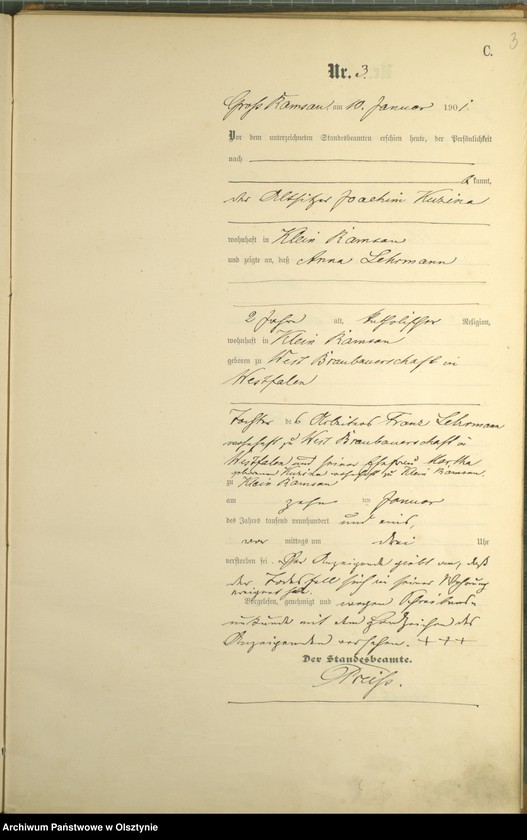 3
C.
Nr. 3.
Gross Ramsau, am 10. Januar 1901.
Vor dem unterzeichneten Standesbeamten erschien heute, der Persönlichkeit
nach
kannt,
der Altsitzer Joachim Kuzina
wohnhaft in Klein Ramsau
und zeigte an, daß Anna Lehrmann
2 Jahre alt, katholischer Religion,
wohnhaft in Klein Ramsau
geboren zu West Braubauerschaft in
Westfalen
Tochter des Arbeiters Franz Lehrmann
wohnhaft zu West Braubauerschaft in
Westfalen und seiner Ehefrau Martha
geborenen Kuzina wohnhaft zu Klein Ramsau.
zu Klein Ramsau
am zehn ten Januar
des Jahres tausend neunhundert und eins,
vor mittags um drei Uhr
verstorben sei. Der Anzeigende giebt an, daß
der Todesfall sich in seiner Wohnung
ereignet hat.
Vorgelesen, genehmigt und wegen Schreibens-
unkunde mit dem Handzeichen des
Anzeigenden versehen. + + +
Der Standesbeamte.
Preiß.
Archiwum Państwowe w Olsztynie